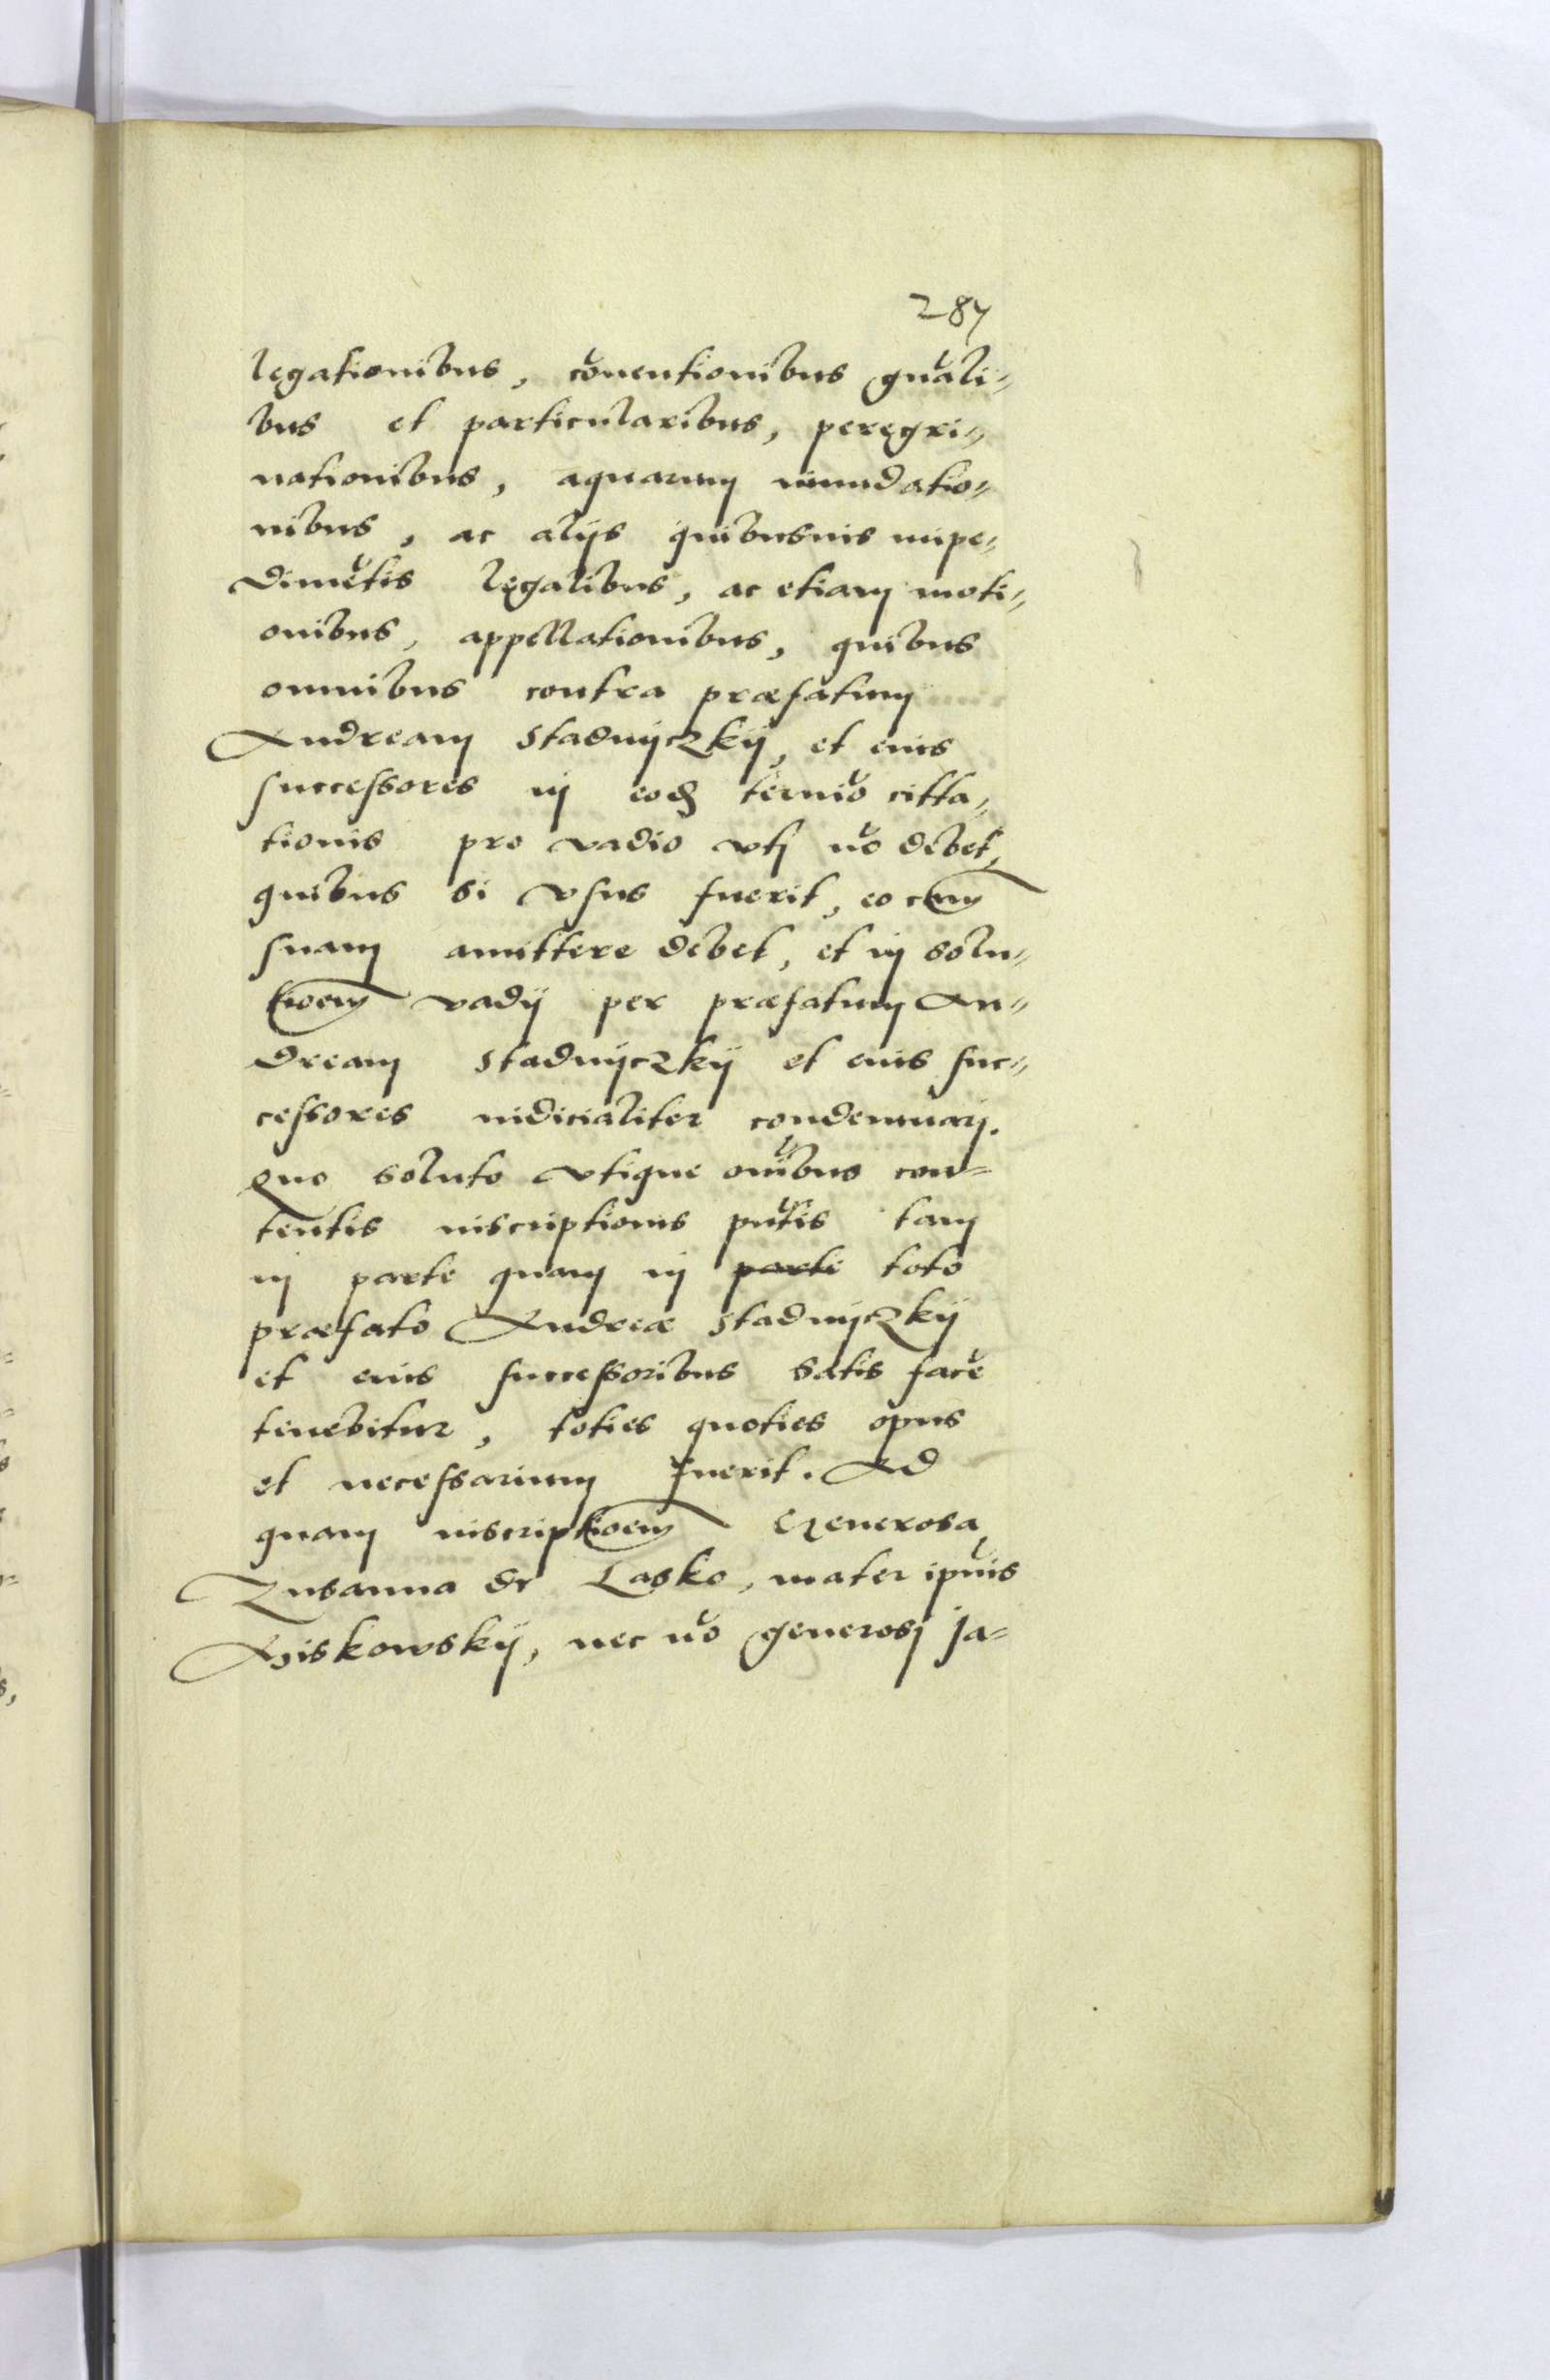 287
legationibus, cōuentionibus gnāli⸗
bus et particularibus, peregri⸗
nationibus, aquarum inundatio⸗
nibus, ac alijs quibusuis impe⸗
dimētis legalibus, ac etiam moti⸗
onibus, appellationibus, quibus
omnibus contra præfatum
Andream Stadnyczkÿ, et eius
successores in eod termīo citta⸗
tionis pro vadio vti nō debet,
quibus si vsus fuerit, eo cām
suam amittere debet, et in solu⸗
tioem vadÿ per præfatum An⸗
dream Stadnyczkÿ et eius suc⸗
cessores iudicialiter condemnari.
Quo soluto vtique oībus con⸗
tentis inscriptionis pn̄tis tam
in parte quam in parte toto
præfato Andreæ Stadnyczkÿ
et eius successoribus satis facē
tenebitur, toties quoties opus
et necessarium fuerit. Ad
quam inscriptioem Generosa
Zusanna de Lasko, mater ipīus
Kiskowskÿ, nec nō generosi Ja⸗